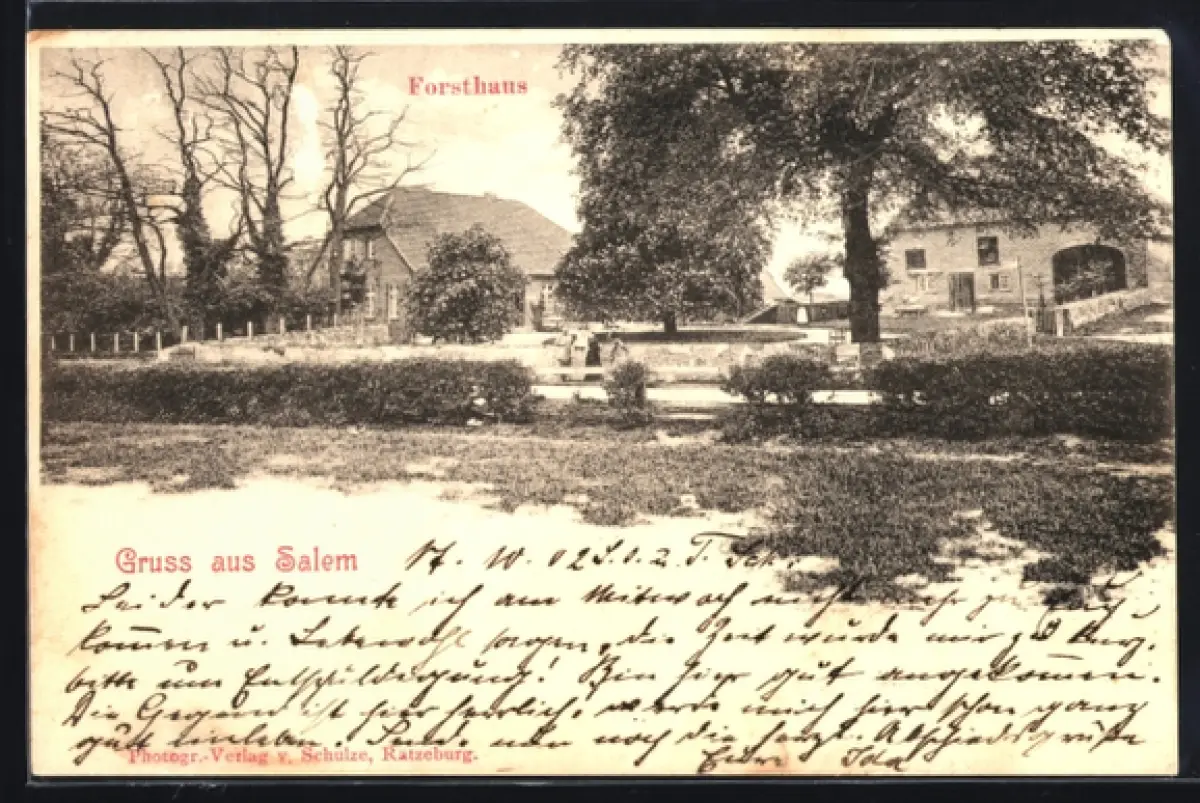 Forsthaus
Gruss aus Salem
10. 02
Leider konnte ich am Mitwoch nicht mehr zu Euch
kommen u. Lebewohl sagen, die Zeit wurde mir zu kurz,
bitte um Entschuldigung! Bin hier gut angekommen.
Die Gegend ist hier herrlich, werde mich hier schon ganz
gut einleben. Sende nun noch die herzl. Abschiedsgrüße
Eure Ida
Photogr.-Verlag v. Schulze, Ratzeburg.